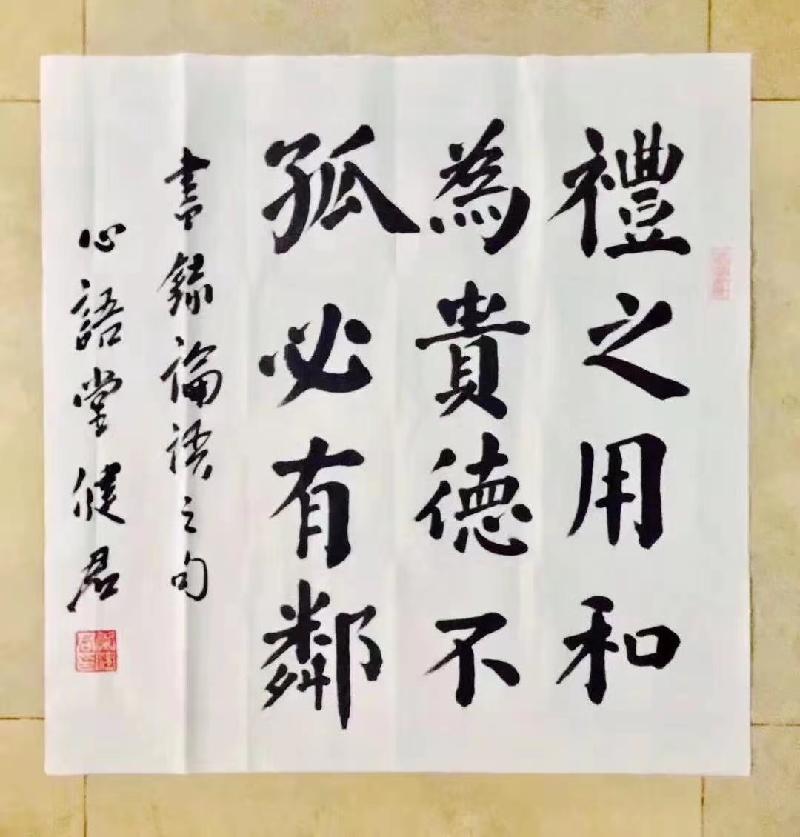 禮之用和
為貴德不
孤必有鄰
書錄論語之句
心語堂健君